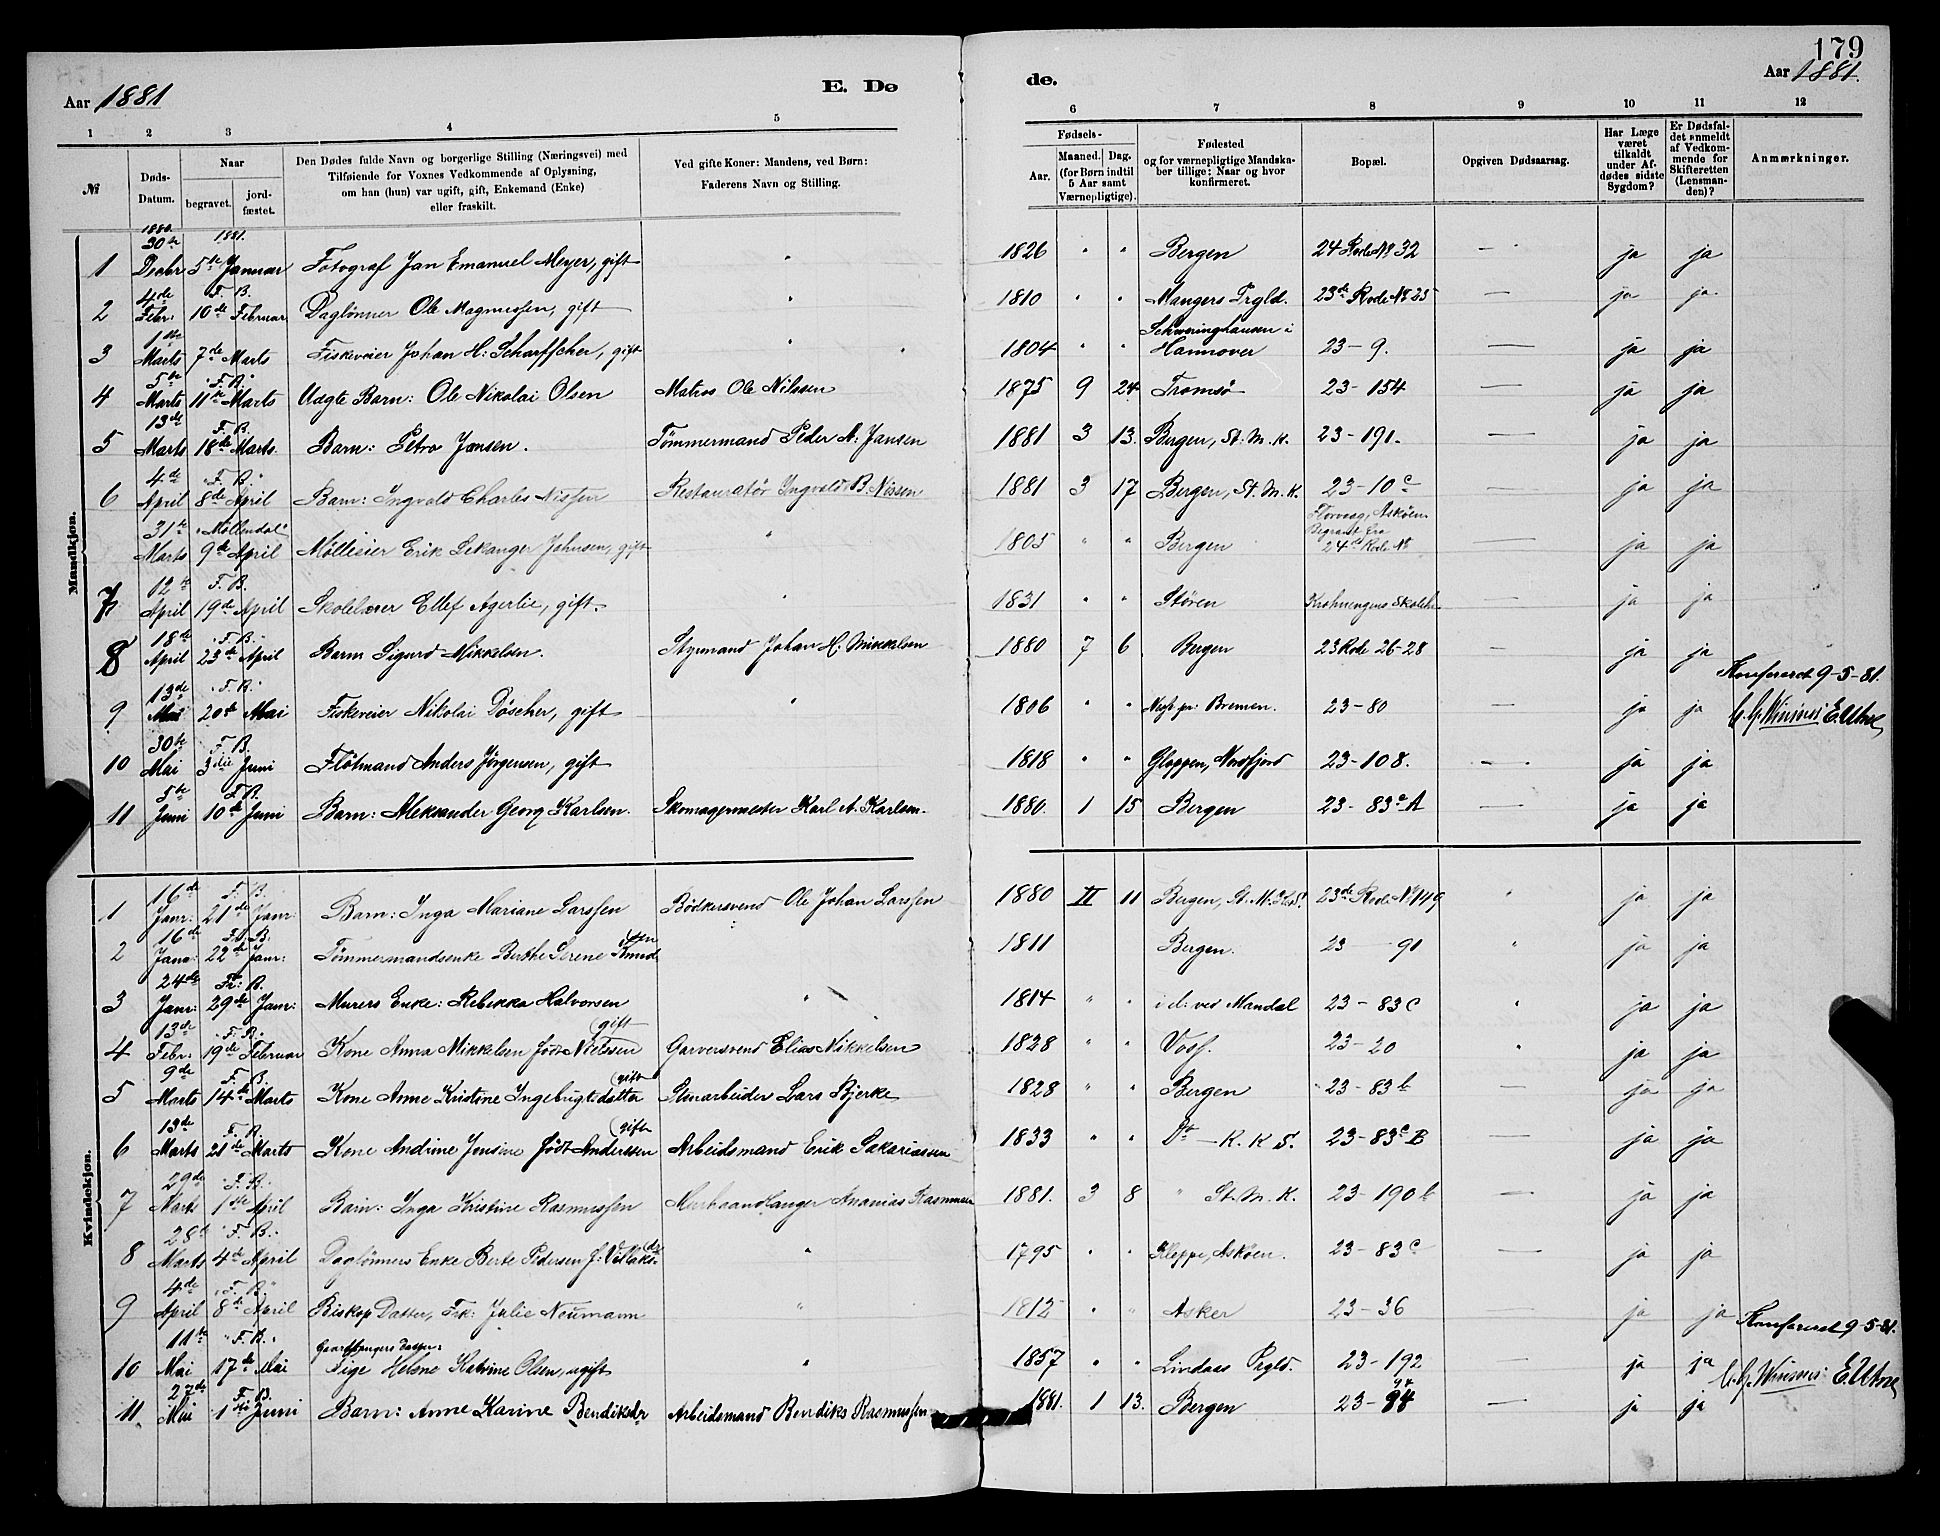 179
Aar 1881
E. Dø
de.
Aar 1881.
1 2 3 4 5 6 7 8 9 10 11 12
№
Døds-Datum.
Naar
begravet.
jord-fæstet.
Den Dødes fulde Navn og borgerlige Stilling (Næringsvei) med
Tilføiende for Voxnes Vedkommende af Oplysning,
om han (hun) var ugift, gift, Enkemand (Enke)
eller fraskilt.
Ved gifte Koner: Mandens, ved Børn:
Faderens Navn og Stilling.
Fødsels-
Aar.
Maaned. Dag.
(for Børn indtil
5 Aar samt
Værnepligtige).
Fødested
og for værnepligtige Mandska-
ber tillige: Naar og hvor
konfirmeret.
Bopæl.
Opgiven Dødsaarsag.
Har Læge
været
tilkaldt
under Af-
dødes sidste
Sygdom?
Er Dødsfal-
det anmeldt
af Vedkom-
mende for
Skifteretten
(Lensman-
den)?
Anmærkninger.
Mandkjøn.
1880. 1881.
1 30te Decbr 5te Januar Fotograf Jan Emanuel Meyer, gift " 1826 " " Bergen 24 Rode № 32 — ja ja
2 4de Febr: F. B. 10de Februar Daglønner Ole Magnussen, gift " 1810 " " Mangers Prgld. 23de Rode № 25 — ja ja
3 1ste Marts 7de Marts Fiskeveier Johan H: Scharffcher, gift " 1804 " " Schweringhausen i Hannover 23-9. — ja ja
4 5te Marts F. B. 11te Marts Uægte Barn: Ole Nikolai Olsen Matros Ole Nilssen 1875 9 24 Tromsø 23-154 — ja ja
5 13de Marts F. B. 18de Marts Barn: Petra Jansen. Tømmermand Peder A. Jansen 1881 3 13. Bergen, St. M. K. 23-191. — ja ja
6 4de April F. B. 8de April Barn: Ingvald Charles Nissen Restauratør Ingvald B. Nissen 1881 3 17 Bergen, St. M. K. 23-10c — ja ja
31te Marts "Møllendal" 9de April Møllesier Erik Lekanger Johnsen, gift " 1805 " " Bergen Florvaag, Askøen. Begravet fra 24de Rode № ja ja
7 12te April F. B. 19de April Skolelærer Ellef Agerlie, gift. " 1831 " " Støren Krohnengens Skoleh. — ja ja
8 18de April F. B. 23de April Barn Sigurd Mikkelsen. Styrmand Johan H: Mikkelsen 1880 7 6 Bergen 23 Rode 26-28 — ja ja
Konfereret 9-5-81.
9 13de Mai F. B. 20de Mai Fiskeveier Nikolai Döscher, gift " 1806 " " pr: Bremen. 23-80 — ja ja
10 30te Mai F. B. 3die Juni Fløtmand Anders Jørgensen, gift 1818 " " Gloppen, Nordfjord 23-108. — ja ja
11 5te Juni F. B. 10de Juni Barn: Aleksander Georg Karlsen. Skomagermester Karl A. Karlsen. 1880. 1 15 Bergen 23-83c A — ja ja
Kvindekjøn.
1 16de Janr: F. B. 21de Janr: Barn: Inga Mariane Larssen Bødkersvend Ole Johan Larssen 1880 II 11 Bergen, St. M. 23de Rode № 149 " ja ja
2 16de Janr: F. B. 22de Janr: Tømmermandsenke Berthe Serene Knudtsen 1811 Bergen. 23 - 91 " ja ja
3 24de Janr: Fr: B. 29de Janr: Murers Enke: Rebekka Halvorsen " 1814 " " i d: ved Mandal 23-83c " ja ja
4 13de Febr: F. B. 19de Februar Kone Anna Mikkelsen født Nielssen (gift Garversvend Elias Mikkelsen 1828 " " Voss. 23-20 " ja ja
5 9de Marts F. B. 14de Marts Kone Anne Kristine Ingebrigtsdatter (gift Stenarbeider Lars Bjerke 1828 " " Bergen 23-83b — ja ja
6 13de Marts F. B. 21de Marts Kone Andrine Jonsine født Anderssen (gift Arbeidsmand Erik Sakariassen 1833 " " Do — K. K. S. 23-83c B — ja ja
7 29de Marts F. B. 1ste April Barn: Inga Kristine Rasmussen Murhaandlanger Ananias Rasmussen 1881. 3 8 " St. M. K. 23-190b — ja ja
8 28de Marts F. B. 4de April Daglønners Enke Berte Pedersen f: " 1795 " " Kleppe, Askøen. 23-83c — ja ja
9 4de April F. B. 8de April Biskop Datter, Frk: Julie Neumann " 1812 " " Asker 23-36 — ja ja
Konfereret 9-5-81.
10 11te Mai F. B. 17de Mai Gaardbrugers Datter: Pige Helene Katrine Olsen, ugift " 1857 " " Lindaas Prgld. 23-192 — ja ja
11 27de Mai F. B. 1ste Juni Barn: Anne Karine Bendiksdr Arbeidsmand Bendiks Rasmussen 1881. 1 13. Bergen 23-94 94 — ja ja